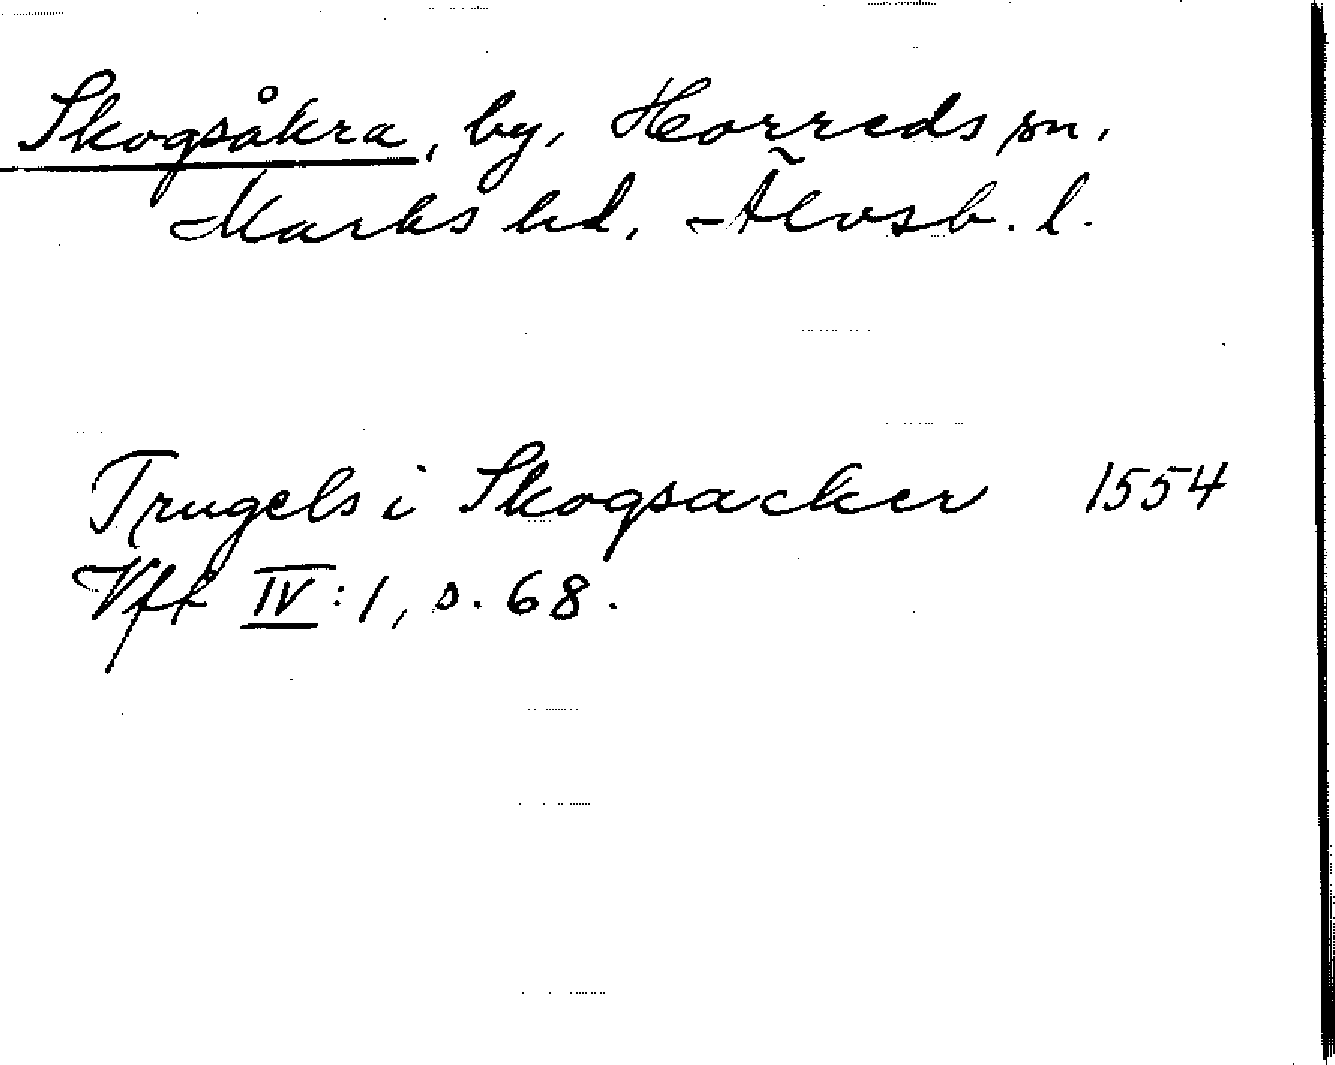 Skogsåkra, by, Horreds sn,
Marks hd, Älvsb. l.
Trugels i Skogsacker 1554
Vft IV:1, s. 68.